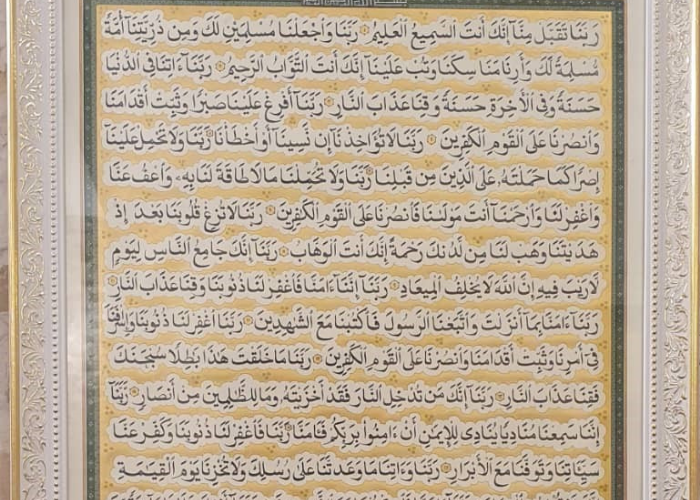 رَبَّنَا تَقَبَّلْ مِنَّا إِنَّكَ أَنتَ السَّمِيعُ الْعَلِيمُ ۞ رَبَّنَا وَاجْعَلْنَا مُسْلِمَيْنِ لَكَ وَمِن ذُرِّيَّتِنَا أُمَّةً
مُّسْلِمَةً لَّكَ وَأَرِنَا مَنَاسِكَنَا وَتُبْ عَلَيْنَا إِنَّكَ أَنتَ التَّوَّابُ الرَّحِيمُ ۞ رَبَّنَا ءَاتِنَا فِي الدُّنْيَا
حَسَنَةً وَفِي الْأَخِرَةِ حَسَنَةً وَقِنَا عَذَابَ النَّارِ ۞ رَبَّنَا أَفْرِغْ عَلَيْنَا صَبْرًا وَثَبِّتْ أَقْدَامَنَا
وَانصُرْنَا عَلَى الْقَوْمِ الْكَٰفِرِينَ ۞ رَبَّنَا لَا تُؤَاخِذْنَا إِن نَّسِينَا أَوْ أَخْطَأْنَا ۞ رَبَّنَا وَلَا تَحْمِلْ عَلَيْنَا
إِصْرًا كَمَا حَمَلْتَهُ عَلَى الَّذِينَ مِن قَبْلِنَا ۞ رَبَّنَا وَلَا تُحَمِّلْنَا مَا لَا طَاقَةَ لَنَا بِهِ وَاعْفُ عَنَّا
وَاغْفِرْ لَنَا وَارْحَمْنَا أَنتَ مَوْلَىٰنَا فَانصُرْنَا عَلَى الْقَوْمِ الْكَٰفِرِينَ ۞ رَبَّنَا لَا تُزِغْ قُلُوبَنَا بَعْدَ إِذْ
هَدَيْتَنَا وَهَبْ لَنَا مِن لَّدُنكَ رَحْمَةً إِنَّكَ أَنتَ الْوَهَّابُ ۞ رَبَّنَا إِنَّكَ جَامِعُ النَّاسِ لِيَوْمٍ
لَّا رَيْبَ فِيهِ إِنَّ اللَّهَ لَا يُخْلِفُ الْمِيعَادَ ۞ رَبَّنَا إِنَّنَا ءَامَنَّا فَاغْفِرْ لَنَا ذُنُوبَنَا وَقِنَا عَذَابَ النَّارِ ۞
رَبَّنَا ءَامَنَّا بِمَا أَنزَلْتَ وَاتَّبَعْنَا الرَّسُولَ فَاكْتُبْنَا مَعَ الشَّٰهِدِينَ ۞ رَبَّنَا اغْفِرْ لَنَا ذُنُوبَنَا وَإِسْرَافَنَا
فِي أَمْرِنَا وَثَبِّتْ أَقْدَامَنَا وَانصُرْنَا عَلَى الْقَوْمِ الْكَٰفِرِينَ ۞ رَبَّنَا مَا خَلَقْتَ هَٰذَا بَٰطِلًا سُبْحَٰنَكَ
فَقِنَا عَذَابَ النَّارِ ۞ رَبَّنَا إِنَّكَ مَن تُدْخِلِ النَّارَ فَقَدْ أَخْزَيْتَهُ وَمَا لِلظَّٰلِمِينَ مِنْ أَنصَارٍ ۞ رَّبَّنَا
إِنَّنَا سَمِعْنَا مُنَادِيًا يُنَادِي لِلْإِيمَٰنِ أَنْ ءَامِنُوا بِرَبِّكُمْ فَـَٔامَنَّا ۞ رَبَّنَا فَاغْفِرْ لَنَا ذُنُوبَنَا وَكَفِّرْ عَنَّا
سَيِّـَٔاتِنَا وَتَوَفَّنَا مَعَ الْأَبْرَارِ ۞ رَبَّنَا وَءَاتِنَا مَا وَعَدتَّنَا عَلَىٰ رُسُلِكَ وَلَا تُخْزِنَا يَوْمَ الْقِيَٰمَةِ